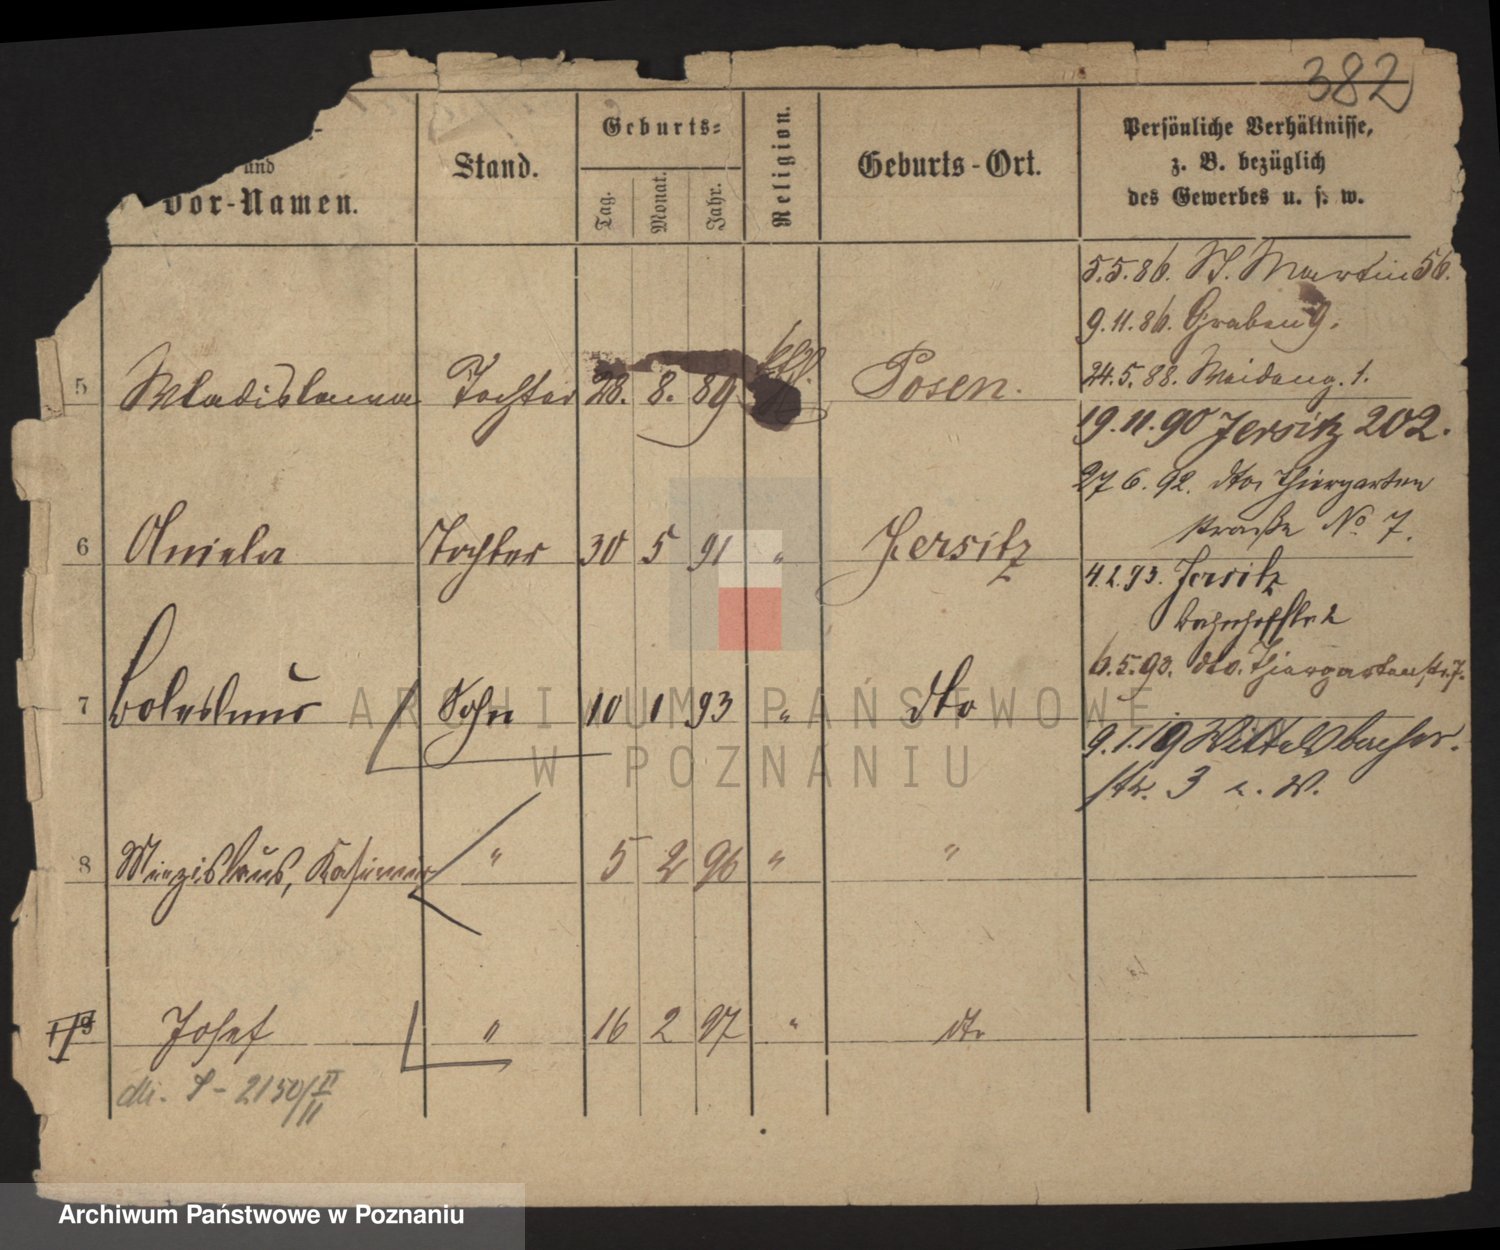 382
und
Vor-Namen.
Stand.
Geburts-
Tag.
Monat.
Jahr.
Religion.
Geburts-Ort.
Persönliche Verhältnisse,
z. B. bezüglich
des Gewerbes u. s. w.
5.5.86. St. Martin 56.
9.11.86. Graben 9.
24.5.88. Weideng. 1.
5 Wladislawa Tochter 28. 8. 89 kth. Posen.
19.11.90 Jersitz 202.
27 6. 92. dto Thiergarten
straße No 7.
6 Aniela Tochter 30 5 91 " Jersitz
4.2.93. Jersitz
Bahnhofstr 2
6.5.93. dto. Thiergartenstr. 7.
7 Boleslaus Sohn 10 1 93 " dto
9.1.19 Wittelsbacher.
str. 3 b. W.
8 Miezislaus, Kasimir " 5 2 96 " "
9 Josef " 16 2 97 " dto
S - 2150/II
ARCHIWUM PAŃSTWOWE
W POZNANIU
Archiwum Państwowe w Poznaniu